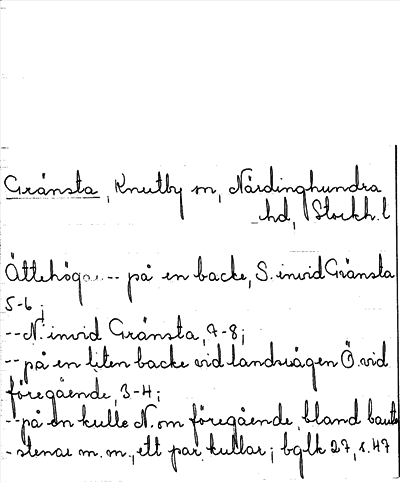 Gränsta, Knutby sn, Närdinghundra
hd, Stockh. l
Ättehögar -- på en backe, S. invid Gränsta
5-6;
-- N. invid Gränsta, 7-8;
-- på en liten backe vid landsvägen Ö. vid
föregående, 3-4;
-- på en kulle N. om föregående, bland bauta-
-stenar m. m., ett par kullar; bglk 27, s. 47